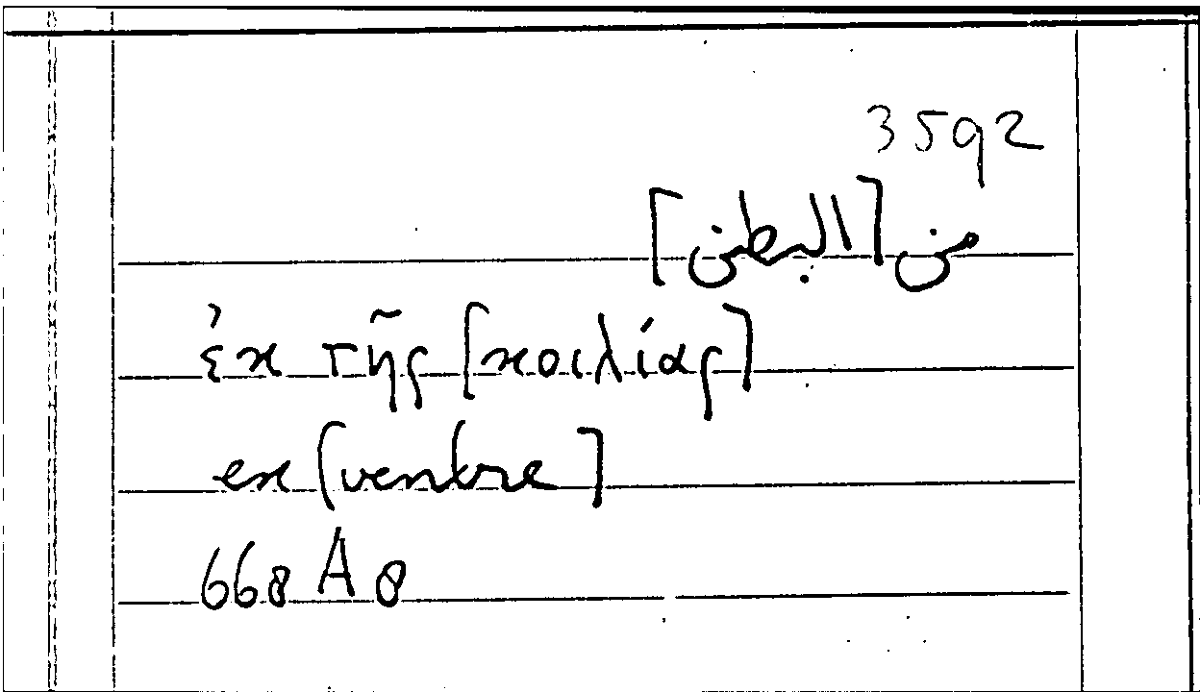 3592
من [البطن]
ἐκ τῆς [κοιλίας]
ex [ventre]
668 A 8